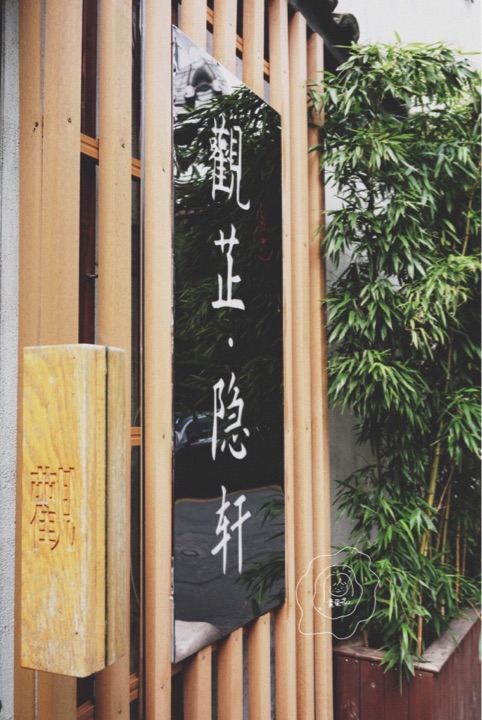 觀芷·隐轩
觀